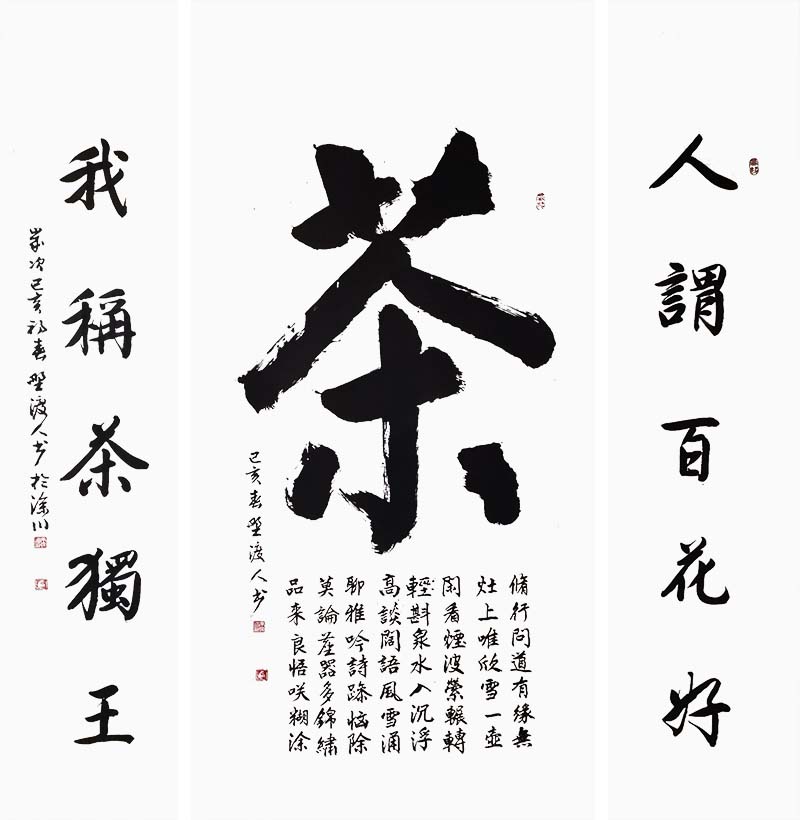 人謂百花好
茶
脩行問道有緣無
灶上唯欣雪一壺
閑看煙波縈輾轉
輕斟泉水入沉浮
高談闊語風雪涌
聊雅吟詩疎惱除
莫論茶器多錦繡
品来良悟咲糊涂
己亥春野渡人书
我稱茶獨王
歲次己亥初春野渡人书於涂川